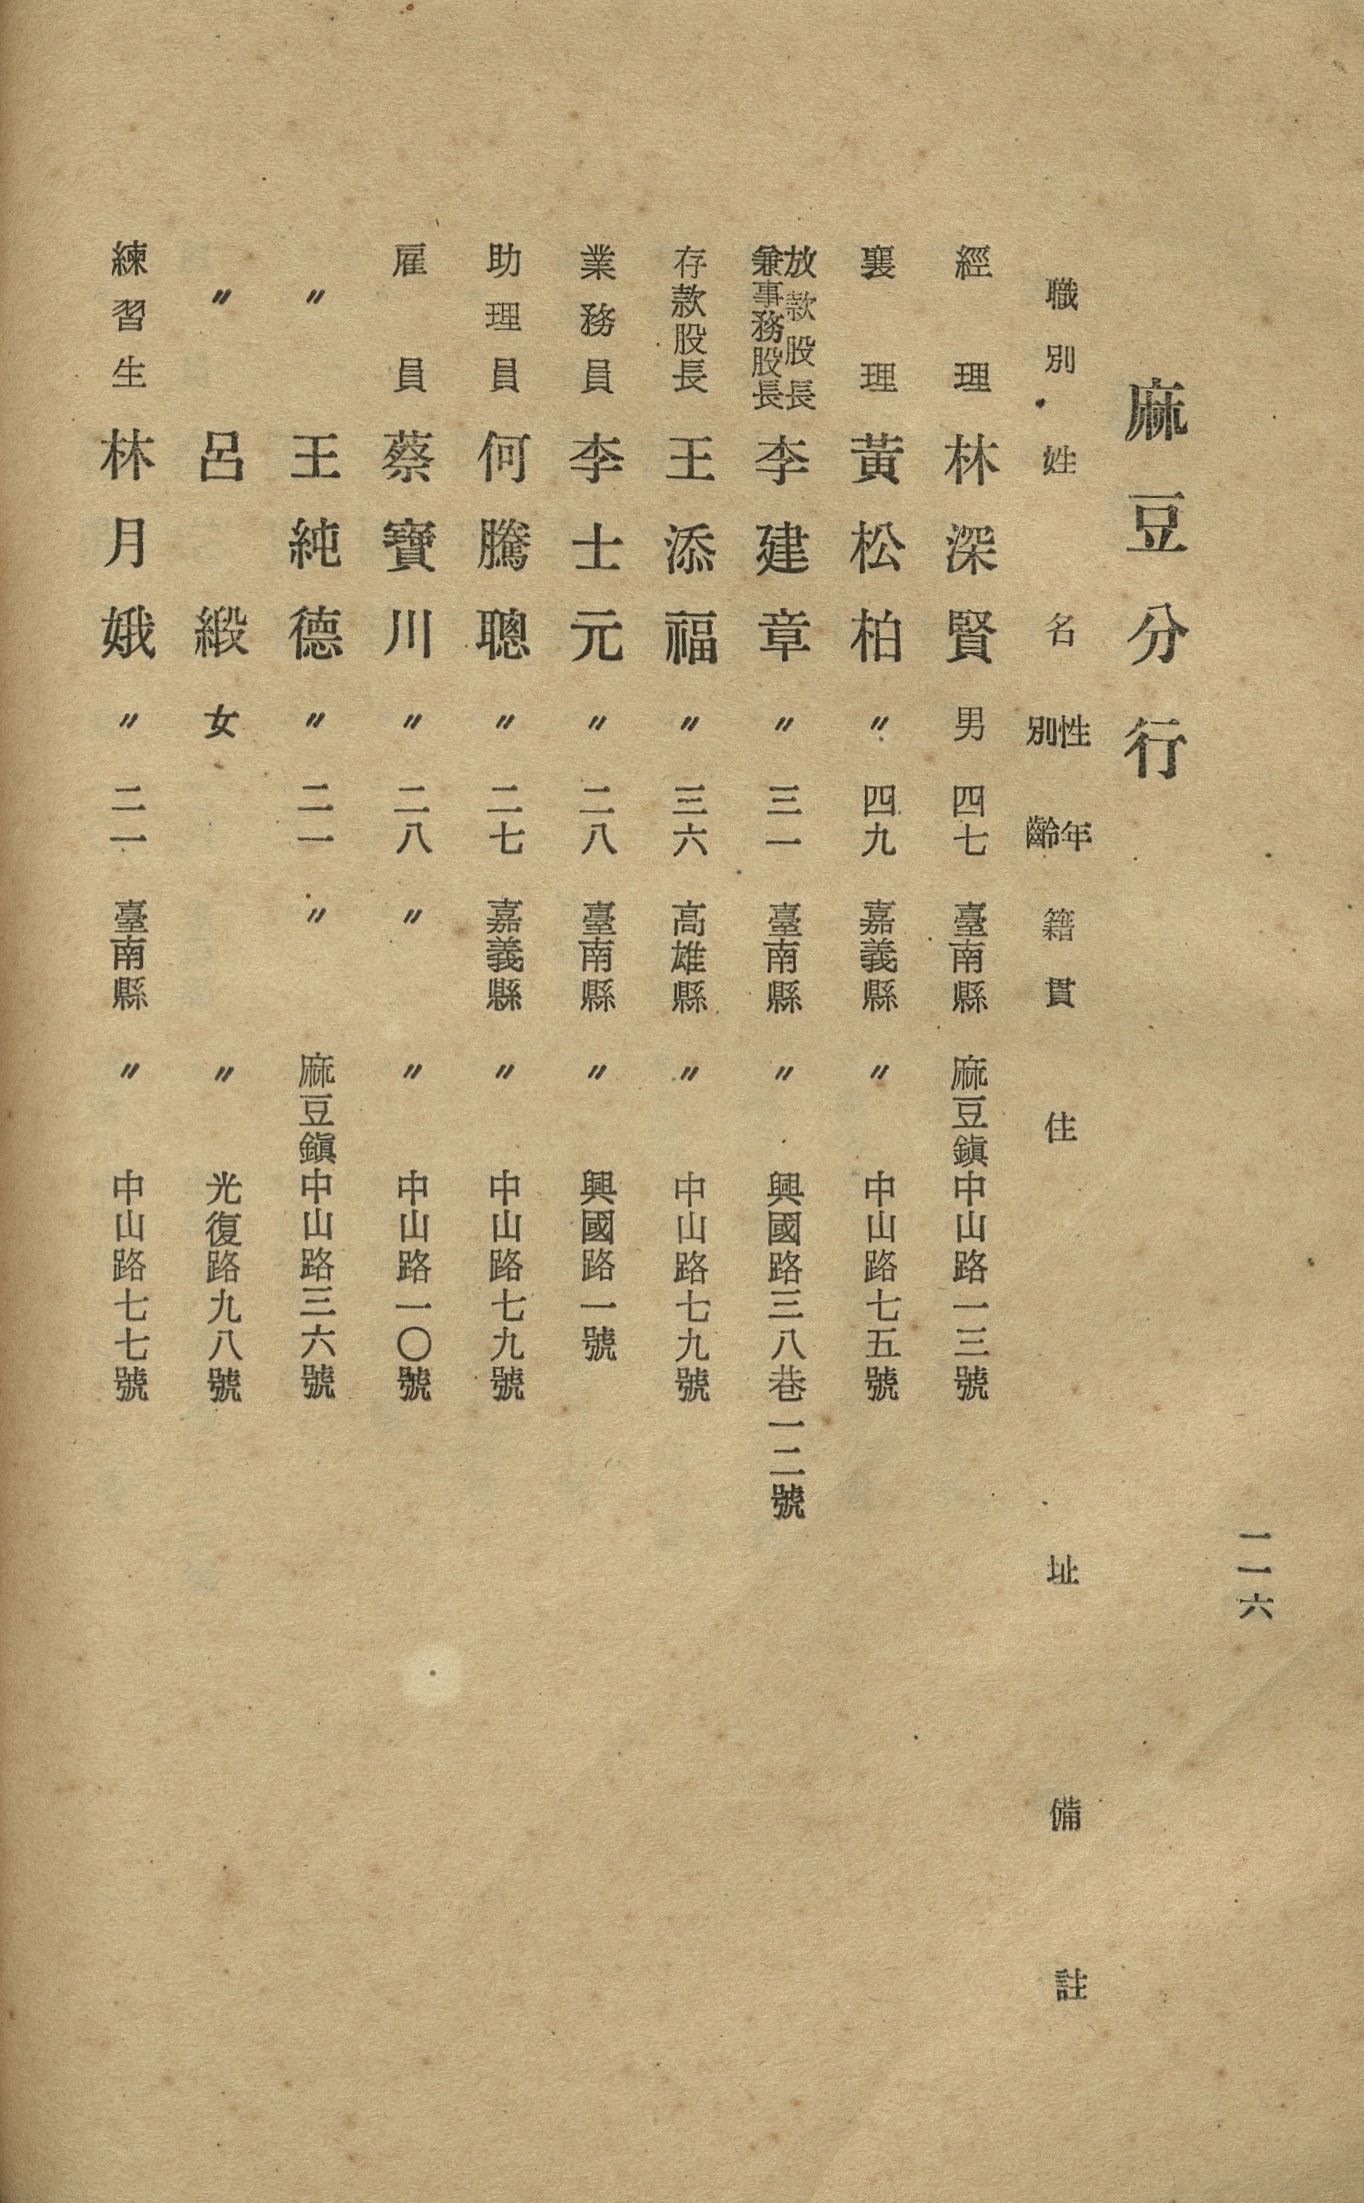 二一六
麻豆分行
職別 姓名 性別 年齡 籍貫 住址 備註
經理 林深賢 男 四七 臺南縣 麻豆鎭中山路一三號
襄理 黃松柏 〃 四九 嘉義縣 〃 中山路七五號
放款股長兼事務股長 李建章 〃 三一 臺南縣 〃 興國路三八巷一二號
存款股長 王添福 〃 三六 高雄縣 〃 中山路七九號
業務員 李士元 〃 二八 臺南縣 〃 興國路一號
助理員 何騰聰 〃 二七 嘉義縣 〃 中山路七九號
雇員 蔡寶川 〃 二八 〃 〃 中山路一〇號
〃 王純德 〃 二一 〃 麻豆鎭中山路三六號
〃 呂緞 女 〃 光復路九八號
練習生 林月娥 〃 二一 臺南縣 〃 中山路七七號